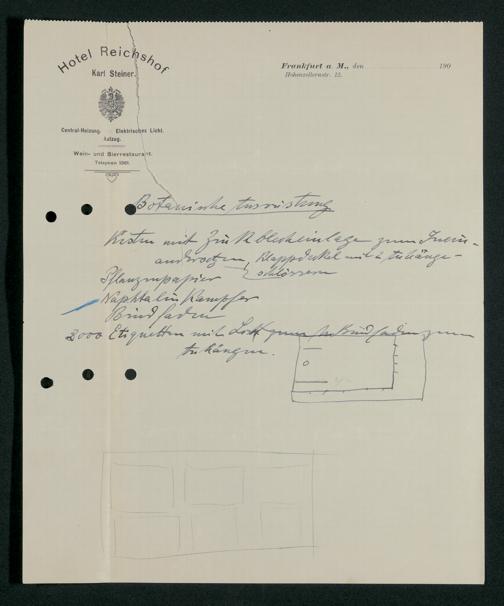 Hotel Reichshof
Karl Steiner.
Central-Heizung. Elektrisches Licht.
Aufzug.
Wein- und Bierrestaurant.
Frankfurt a. M., den 190
Hohenzollernstr. 12.
Botanische Ausrüstung
Kisten mit Zinkblecheinlage zum Inein-
andersetzen, Klappdeckel mit 2 Anhänge-
schlössern
Pflanzenpapier
Naphtalin Kampfer
Bindfaden
2000 Etiquetten mit Loch zum Bindfaden zum
Anhängen.